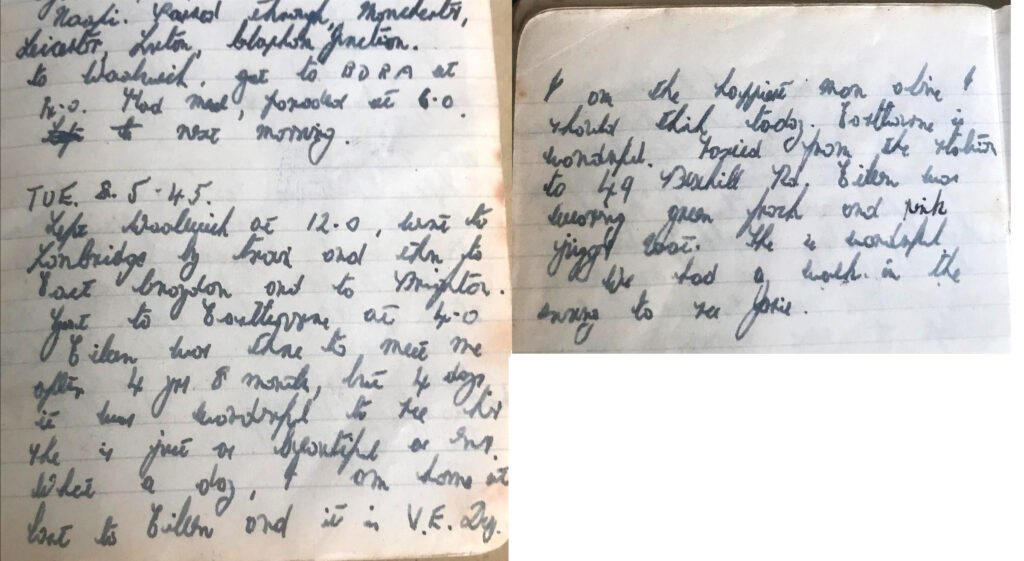 Naafi. Passed through, Manchester,
Leicester, Luton, Clapham Junction.
to Woolwich. got to BDRA at
Had meal, paraded at 6.0.
next morning.
TUE. 8.5.45.
Left Woolwich at 12.0, went to
Tonbridge by train and then to
East Croydon and to Brighton.
Got to Eastbourne at 4.0
Eileen was there to meet me
after 4 yrs 8 months, but 4 days
it was wonderful to see her
she is just as beautiful as ever.
What a day, I am home at
last to Eileen and it is V.E. Day.
I am the happiest man alive I
should think today. Eastbourne is
wonderful. Taxied from the station
to 49 Bexhill Rd. Eileen was
wearing green frock and pink
coat. She is wonderful
We had a walk in the
evening to see